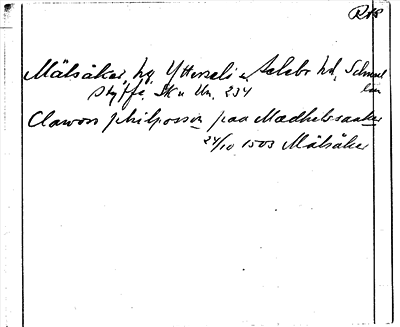 R18
Mälsåker, hg, Ytterselö sn, Selebo hd, Södermanl
län
Styffe, Sk u Un. 234
Clawoss philposson paa Mædhelssaaker
24/10 1503 Mälsåker